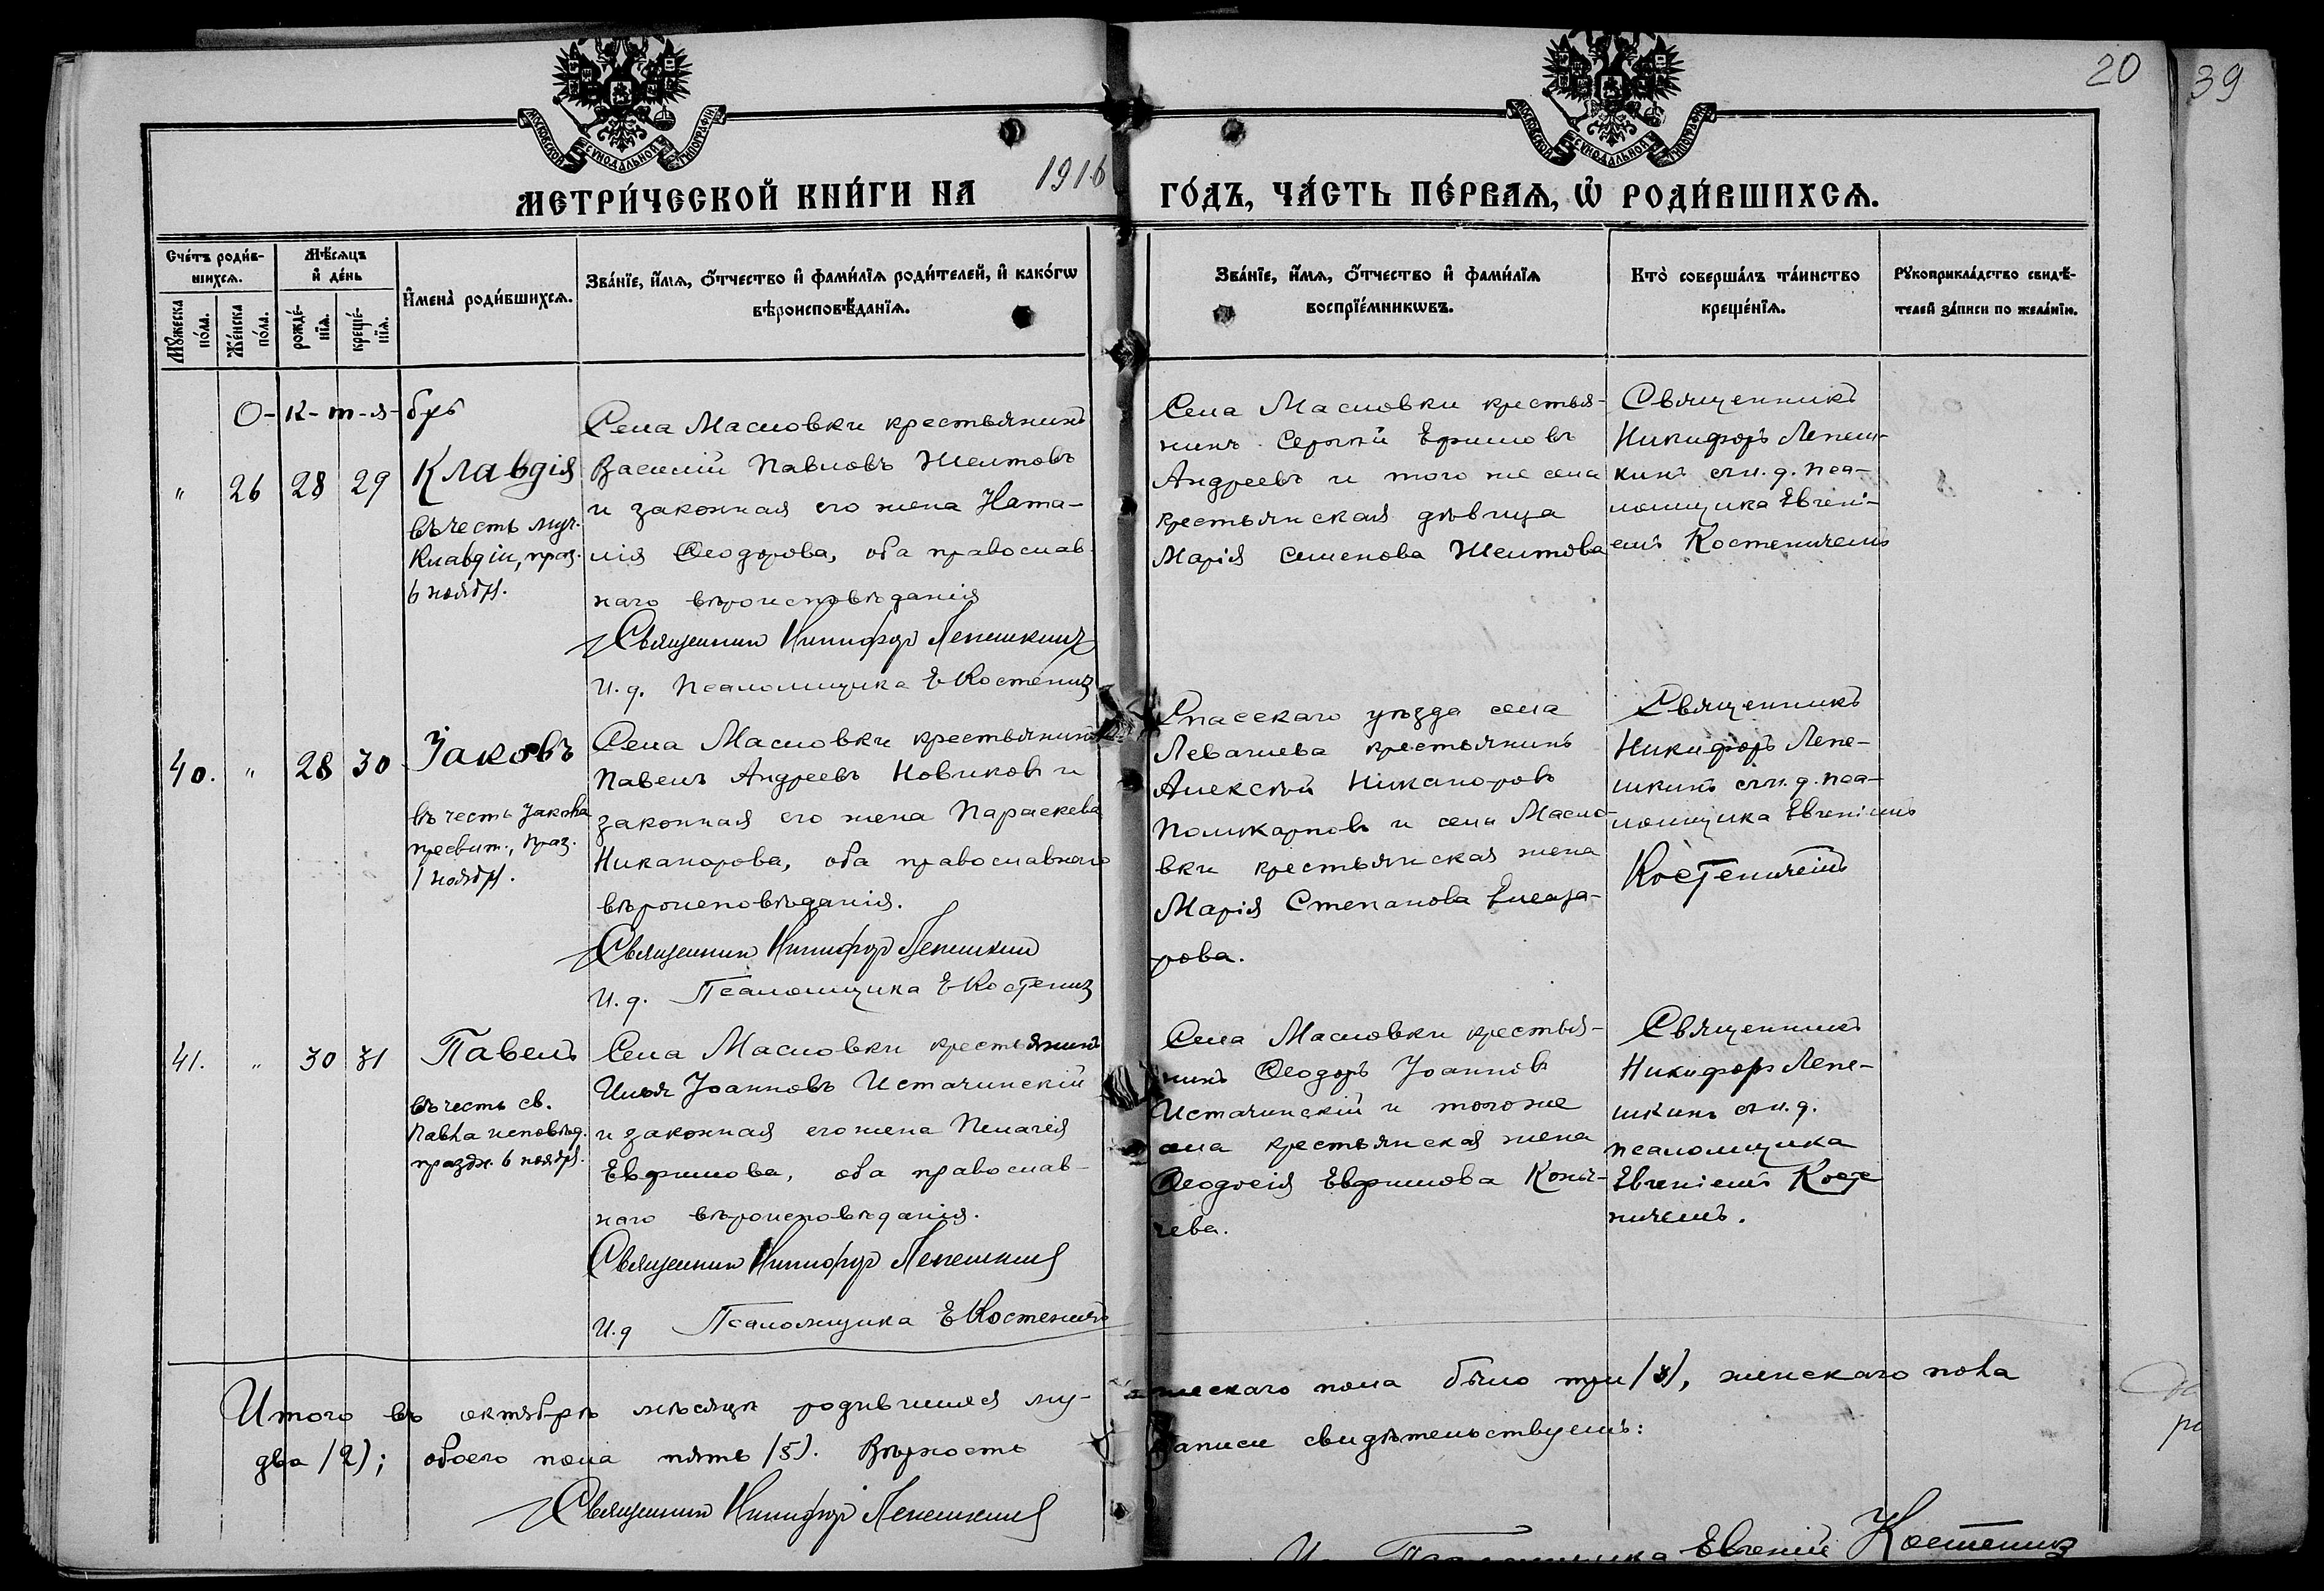 20
39
МОСКОВСКОЙ СѴНОДАЛЬНОЙ ТИПОГРАФІИ
МОСКОВСКОЙ СѴНОДАЛЬНОЙ ТИПОГРАФІИ
МЕТРИ́ЧЕСКОЙ КНИ́ГИ НА 1916 ГО́ДЪ, ЧА́СТЬ ПЕ́РВАѦ, Ѡ҆ РОДИ́ВШИХСѦ.
Сче́тъ роди́в-
шихсѧ.
Мꙋ́жеска
по́ла.
Же́нска
по́ла.
Мѣ́сѧцъ
и҆ де́нь
рожде́-
нїѧ.
креще́-
нїѧ.
И҆мена̀ роди́вшихсѧ.
Зва́нїе, и҆́мѧ, ѻ҆́тчество и҆ фами́лїѧ роди́телей, и҆ како́гѡ
вѣроисповѣ́данїѧ.
Зва́нїе, и҆́мѧ, ѻ҆́тчество и҆ фами́лїѧ
воспрїе́мникѡвъ.
Кто̀ соверша́лъ та́инство
креще́нїѧ.
Рꙋкоприкла́дство свидѣ́-
телей за́писи по жела́нїю.
О-к-т-я-брь
" 26 28 29
Клавдія
въ честь муч.
Клавдіи, праз.
6 ноябр.
Села Масловки крестьянинъ
Василій Павловъ Желтовъ
и законная его жена Ната-
лія Ѳеодорова, оба православ-
наго вѣроисповѣданія
Священник Никифор Лепешкинъ
И. д. Псаломщика Е Костенич
Села Масловки крестья-
нинъ Сергѣй Ефимовъ
Андреевъ и того же села
крестьянская дѣвица
Марія Семенова Желтова
Священникъ
Никифоръ Лепеш-
кинъ съ и. д. пса-
ломщика Евгені-
емъ Костеничемъ
40. " 28 30
Іаковъ
въ честь Іакова
пресвит., праз.
1 ноябр.
Села Масловки крестьянинъ
Павелъ Андреевъ Новиковъ и
законная его жена Параскева
Никанорова, оба православнаго
вѣроисповѣданія.
Священник Никифор Лепешкин
И. д. Псаломщика Е Костенич
Спасскаго уѣзда села
Левашева крестьянинъ
Алексѣй Никаноровъ
Поликарповъ и села Масло-
вки крестьянская жена
Марія Степанова Елеаза-
рова.
Священникъ
Никифоръ Лепе-
шкинъ съ и. д. пса-
ломщика Евгеніемъ
Костеничемъ
41. " 30 31
Павелъ
въ честь св.
Павла исповѣд.
праздн. 6 ноябр.
Села Масловки крестьянинъ
Илья Іоанновъ Истачинскій
и законная его жена Пелагія
Евфимова, оба православ-
наго вѣроисповѣданія.
Священник Никифор Лепешкин
И. д Псаломщика Е Костеничъ
Села Масловки крестья-
нинъ Ѳеодоръ Іоанновъ
Истачинскій и того же
села крестьянская жена
Ѳеодосія Евфимова Коны-
чева.
Священникъ
Никифоръ Лепе-
шкинъ съ и. д.
псаломщика
Евгеніемъ Косте
ничемъ.
Итого въ октябрѣ мѣсяцѣ родившихся му-жескаго пола было три (3), женскаго пола
два (2); обоего пола пять (5). Вѣрность записи свидѣтельствуемъ:
Священник Никифор Лепешкин
Псаломщика Евгеній Костенич